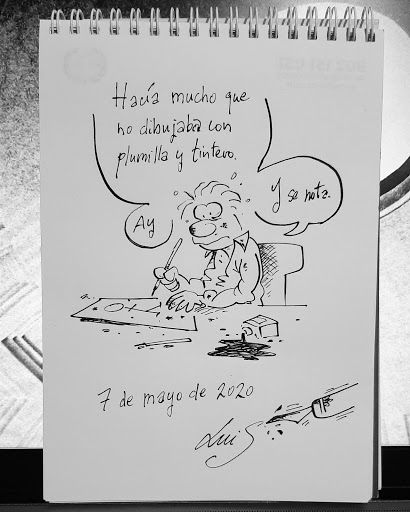 Hacía mucho que
no dibujaba con
plumilla y tintero.
Ay
Y se nota.
7 de mayo de 2020
Luis